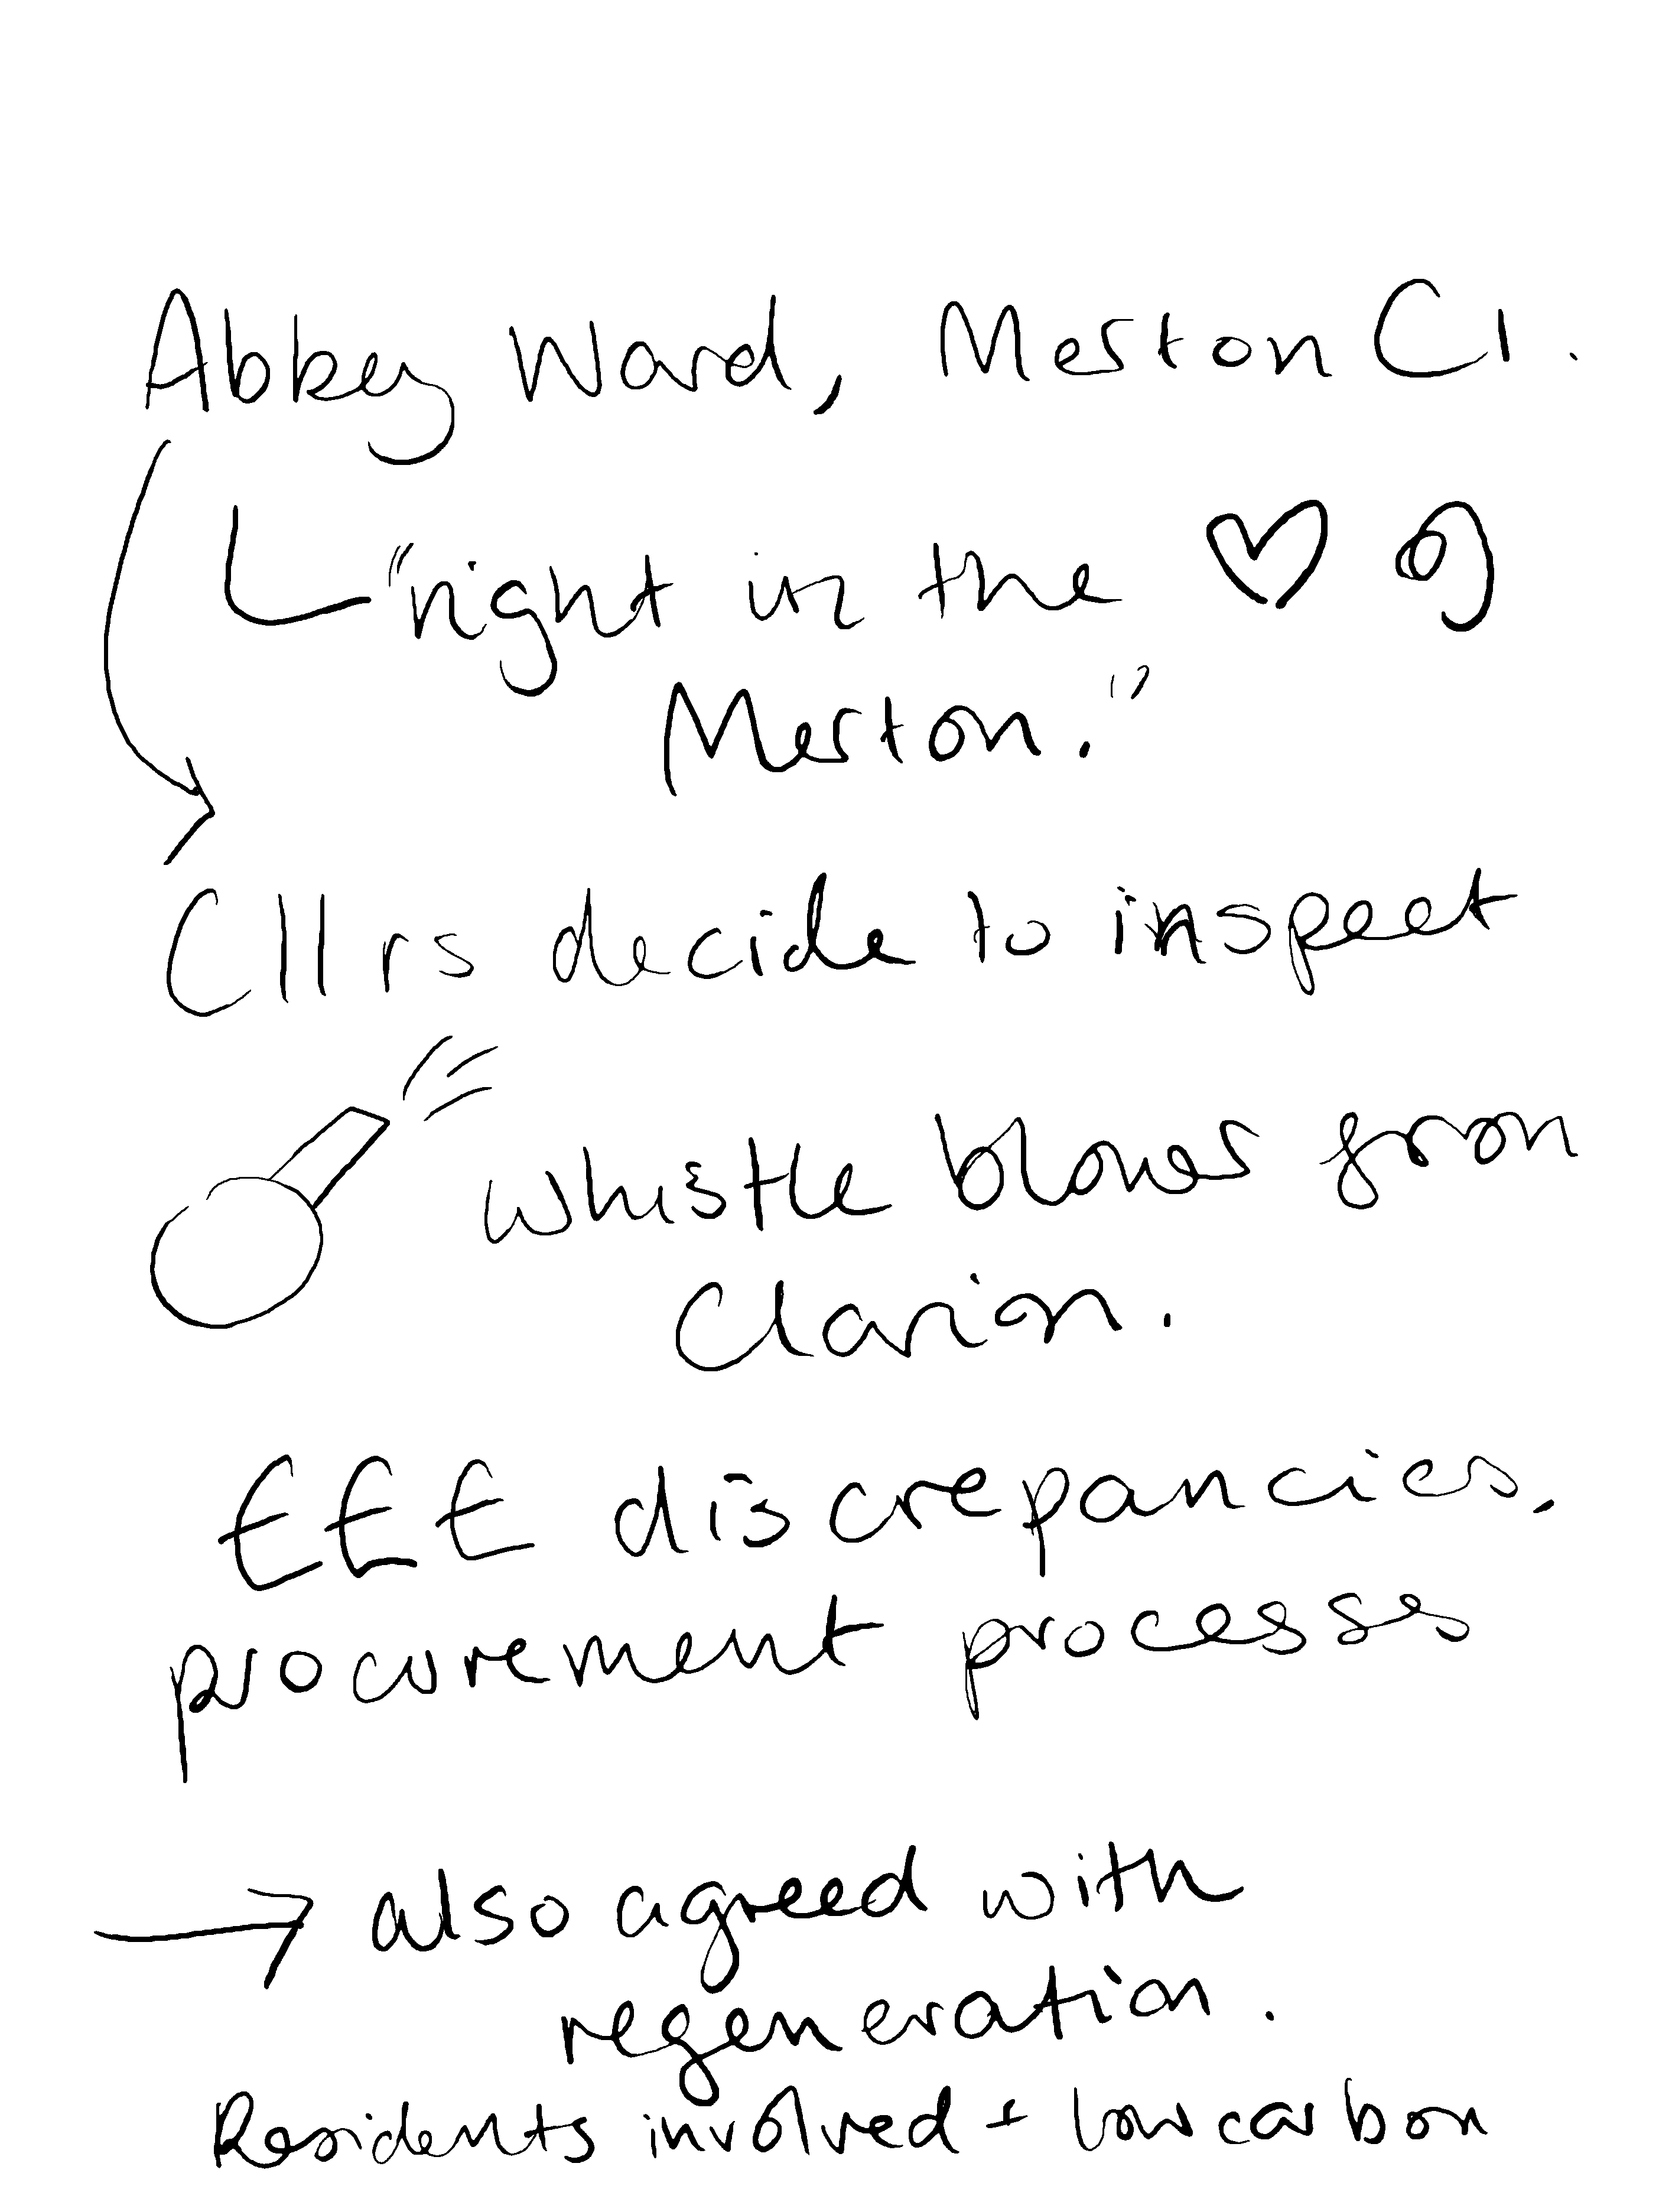 Abbey Ward, Merton Cl.
"right in the ♡ of
Merton."
Cllrs decide to inspect
whistle blower from
Clarion.
£££ discrepancies,
procurement processes
→ also agreed with
regeneration.
Residents involved + low carbon